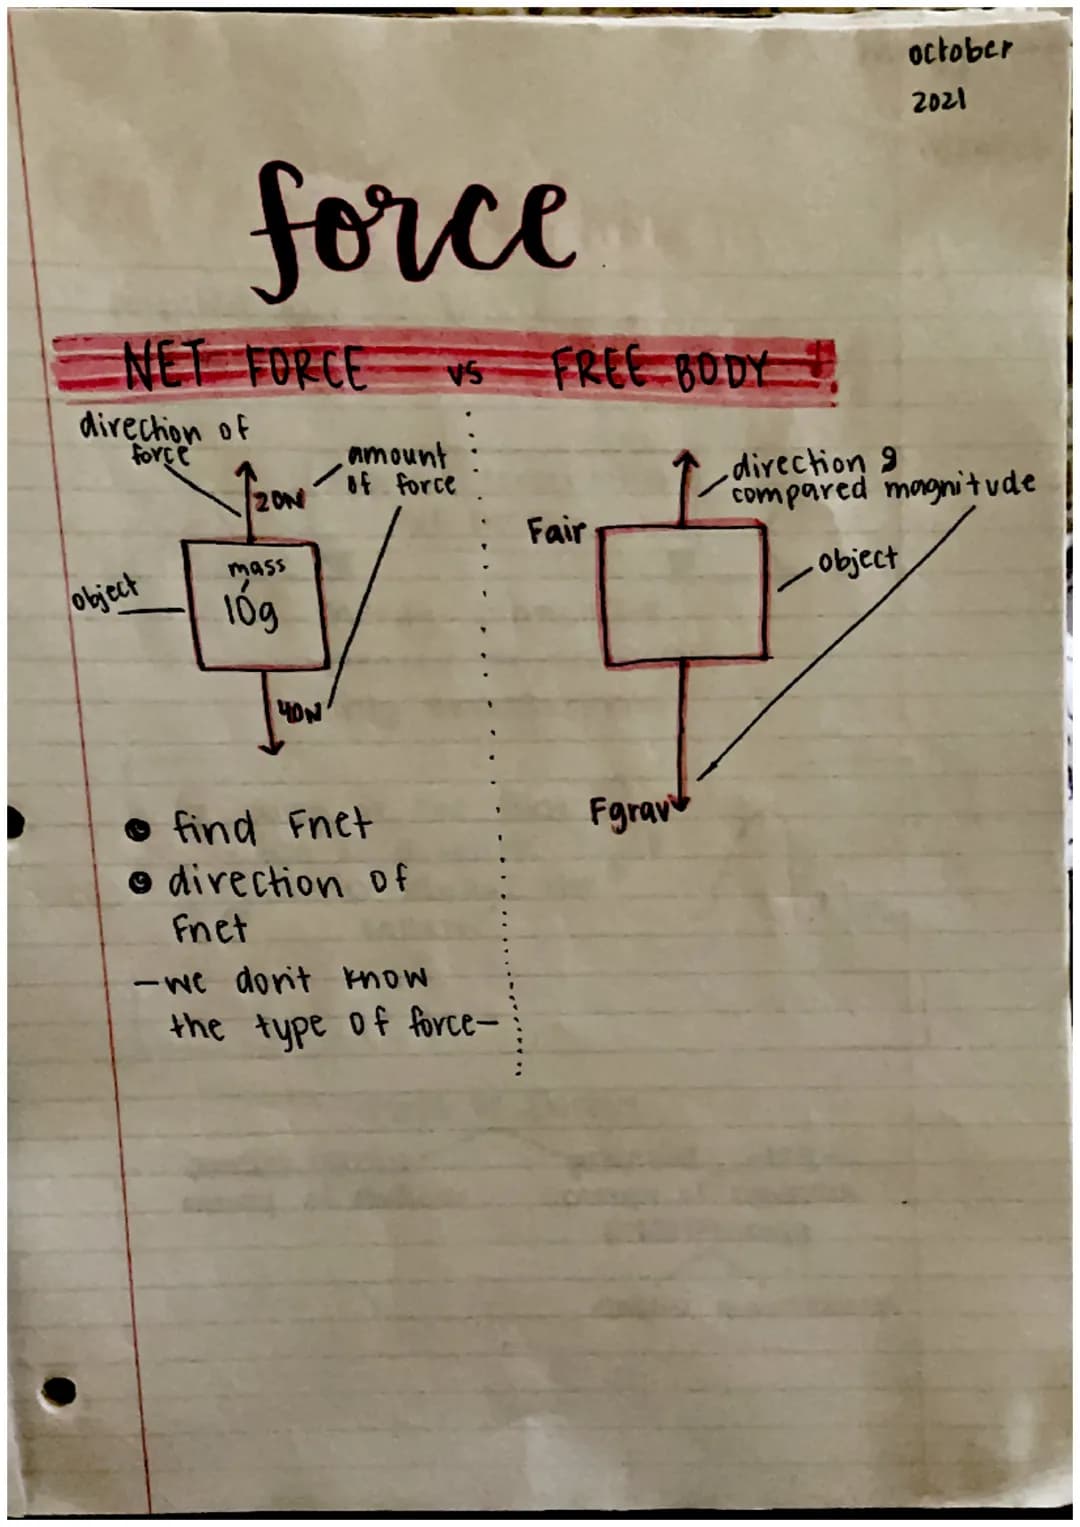 october
2021
force
NET FORCE vs FREE BODY
direction of
force
20N
amount
of force
object
mass
10g
40N
• find Fnet
• direction of
Fnet
- we don't know
the type of force -
direction &
compared magnitude
Fair
object
Fgrav